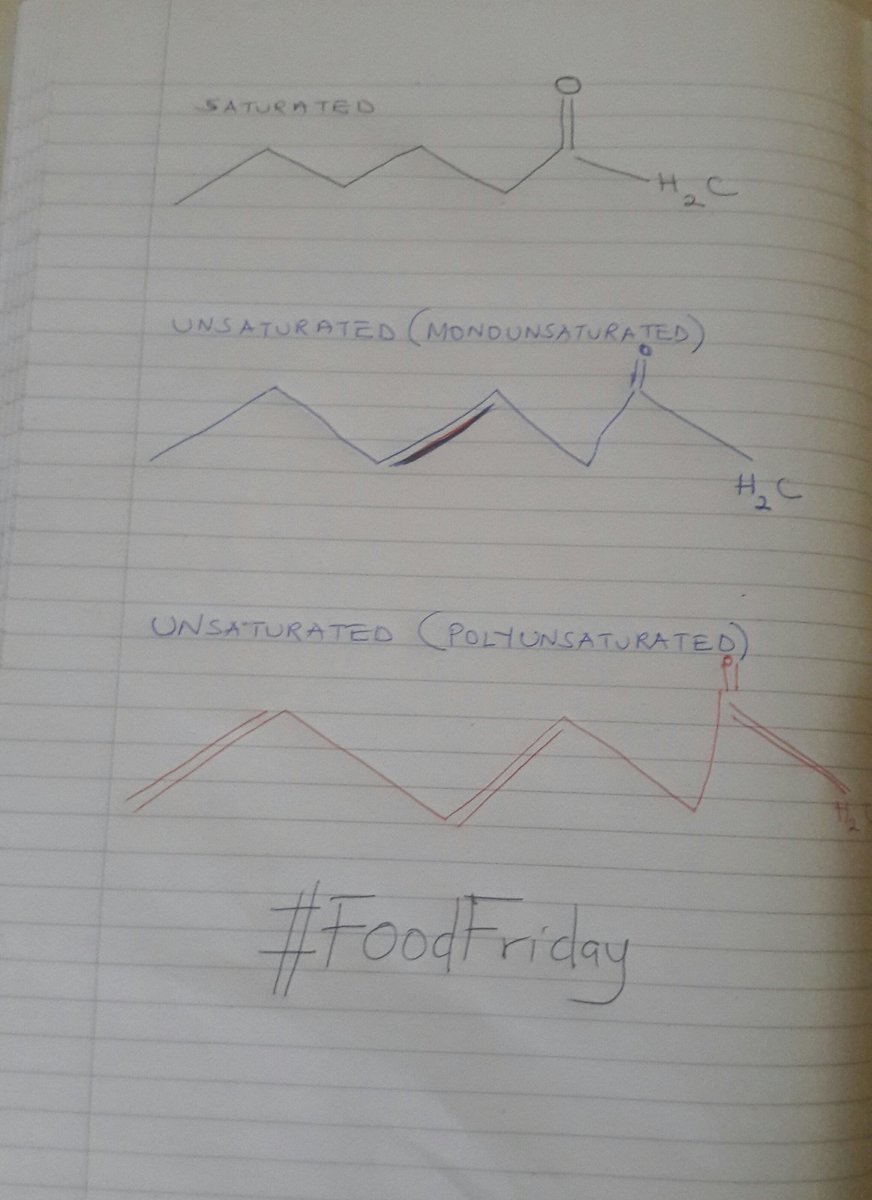 SATURATED
O
H2C
UNSATURATED (MONOUNSATURATED)
O
H2C
UNSATURATED (POLYUNSATURATED)
O
H2C
#FoodFriday